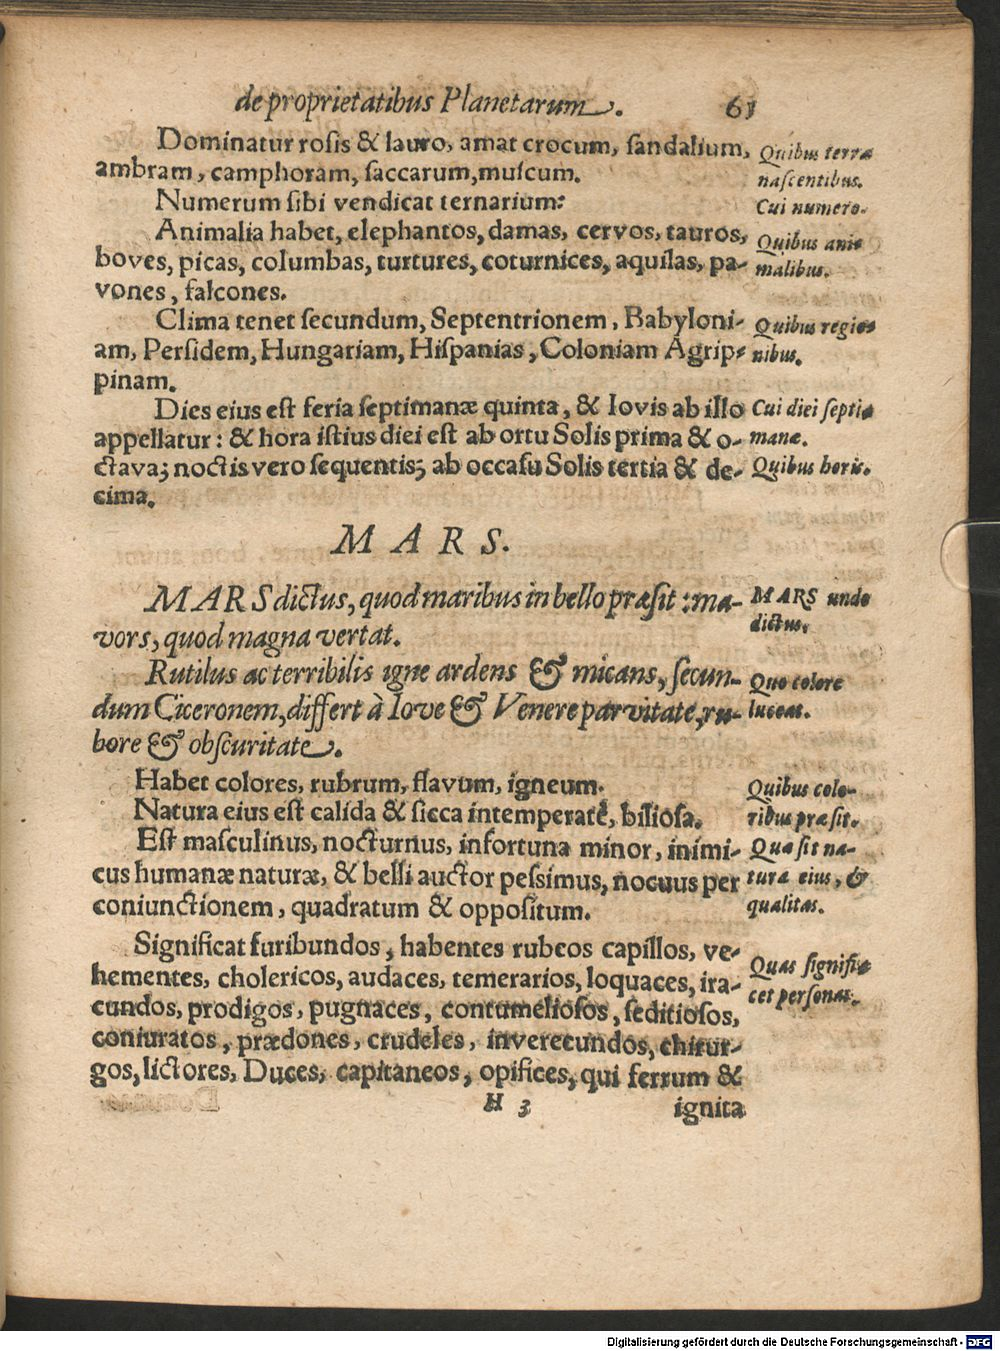 de proprietatibus Planetarum. 61
Dominatur rosis & lauro, amat crocum, sandalium,
ambram, camphoram, saccarum, muscum.
Quibus terra
nascentibus.
Numerum sibi vendicat ternarium:
Cui numero.
Animalia habet, elephantos, damas, cervos, tauros,
boves, picas, columbas, turtures, coturnices, aquilas, pa-
vones, falcones.
Quibus ani-
malibus.
Clima tenet secundum, Septentrionem, Babyloni-
am, Persidem, Hungariam, Hispanias, Coloniam Agrip-
pinam.
Quibus regio-
nibus.
Dies eius est feria septimanæ quinta, & Iovis ab illo
appellatur: & hora istius diei est ab ortu Solis prima & o-
ctava; noctis vero sequentis; ab occasu Solis tertia & de-
cima.
Cui diei septi-
manæ.
Quibus horis.
MARS.
MARS dictus, quod maribus in bello præsit: ma-
vors, quod magna vertat.
MARS unde
dictus.
Rutilus ac terribilis igne ardens & micans, secun-
dum Ciceronem, differt à Iove & Venere parvitate, ru-
bore & obscuritate.
Quo colore
luceat.
Habet colores, rubrum, flavum, igneum.
Quibus colo-
ribus præsit.
Natura eius est calida & sicca intemperatè, biliosa.
Est masculinus, nocturnus, infortuna minor, inimi-
cus humanæ naturæ, & belli auctor pessimus, nocuus per
coniunctionem, quadratum & oppositum.
Qua sit na-
tura eius, &
qualitas.
Significat furibundos, habentes rubeos capillos, ve-
hementes, cholericos, audaces, temerarios, loquaces, ira-
cundos, prodigos, pugnaces, contumeliosos, seditiosos,
coniuratos, prædones, crudeles, inverecundos, chirur-
gos, lictores, Duces, capitaneos, opifices, qui ferrum &
Quas signifi-
cet personas.
H 3
ignita
Digitalisierung gefördert durch die Deutsche Forschungsgemeinschaft - DFG